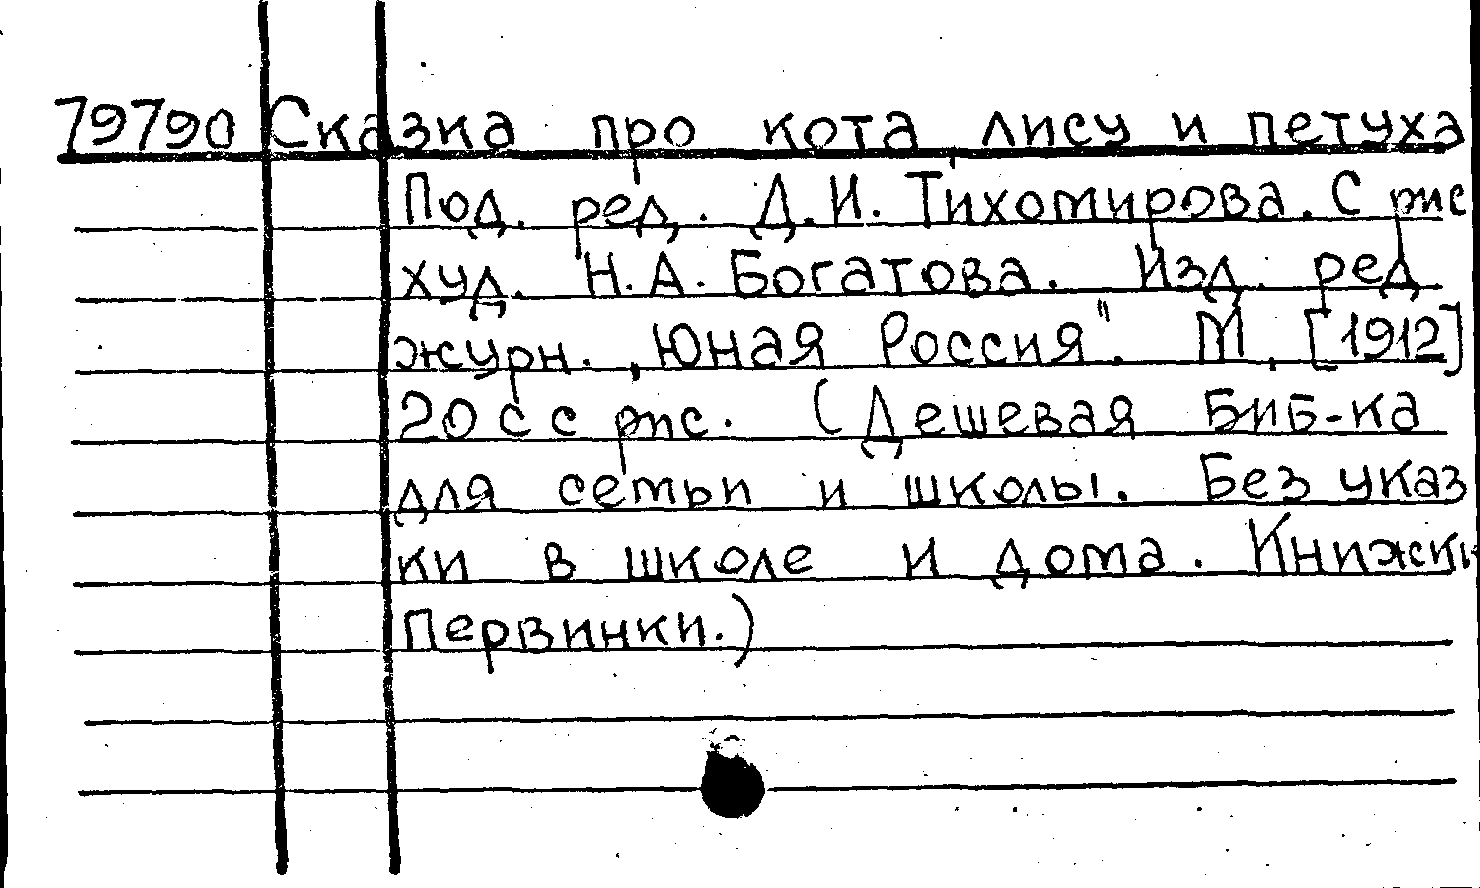 79790 Сказка про кота, лису и петуха
Под. ред. Д.И. Тихомирова. С рис
худ. Н.А. Богатова. Изд. ред
журн. „Юная Россия". М, [1912]
20 с с рис. (Дешевая Биб-ка
для семьи и школы. Без указ
ки в школе и дома. Книжки
Первинки.)